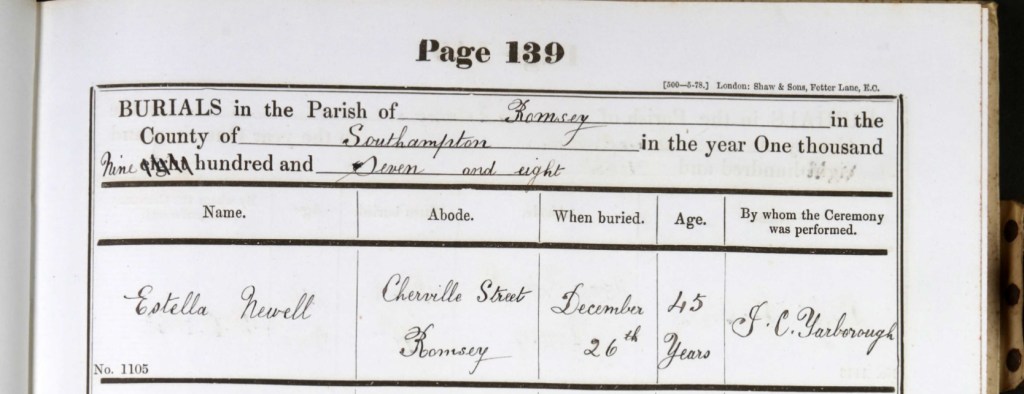 Page 139
[500—5-78.] London: Shaw & Sons, Fetter Lane, E.C.
BURIALS in the Parish of Romsey in the
County of Southampton in the year One thousand
Nine eight hundred and Seven and eight
Name. Abode. When buried. Age. By whom the Ceremony
was performed.
Estella Newell Cherville Street December 45 J. C. Yarborough
Romsey 26th Years
No. 1105